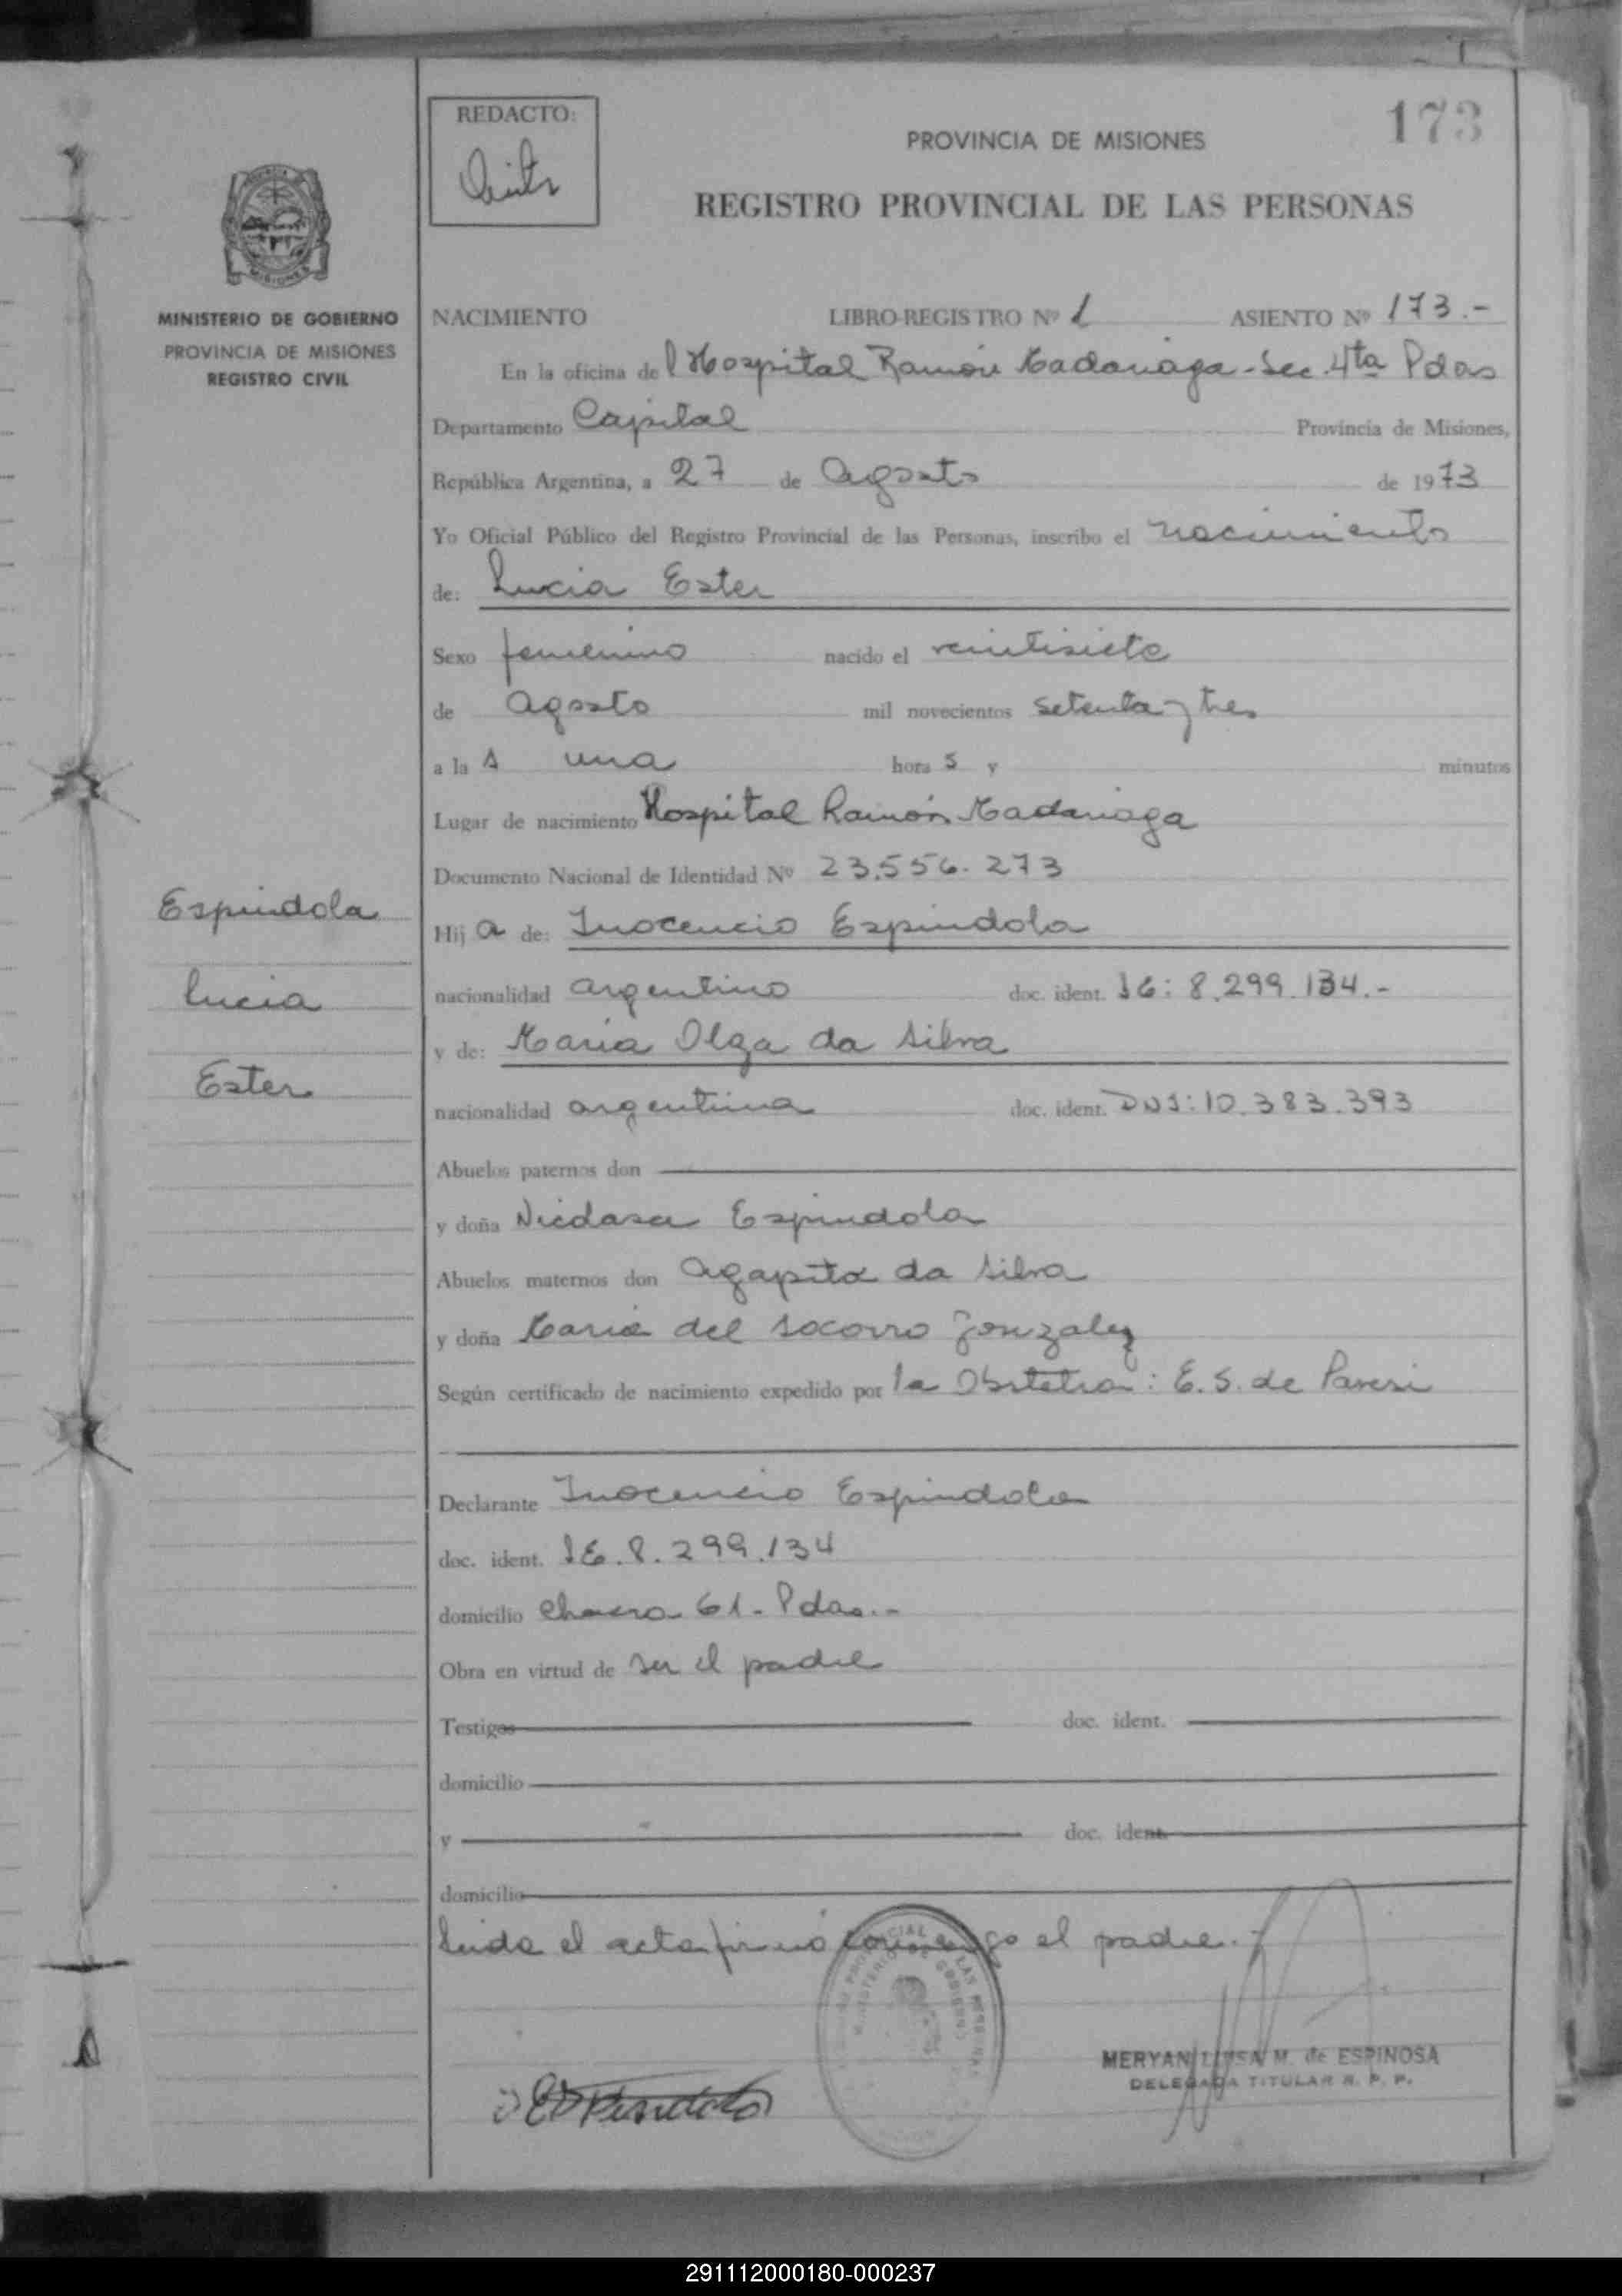 173
REDACTO:
PROVINCIA DE MISIONES
REGISTRO PROVINCIAL DE LAS PERSONAS
MISIONES
MINISTERIO DE GOBIERNO
PROVINCIA DE MISIONES
REGISTRO CIVIL
NACIMIENTO LIBRO-REGISTRO Nº 1 ASIENTO Nº 173.-
En la oficina del Hospital Ramón Madariaga - Sec. 4ta Pdas
Departamento Capital Provincia de Misiones,
República Argentina, a 27 de Agosto de 1973
Yo Oficial Público del Registro Provincial de las Personas, inscribo el nacimiento
de: Lucia Ester
Sexo femenino nacido el veintisiete
de Agosto mil novecientos setenta y tres
a la s una hora s y minutos
Lugar de nacimiento Hospital Ramón Madariaga
Documento Nacional de Identidad Nº 23.556.273
Espindola
Lucia
Ester
Hij a de: Inocencio Espindola
nacionalidad argentino doc. ident. 8.299.134.-
y de: Maria Olga da Silva
nacionalidad argentina doc. ident. DNI: 10.383.393
Abuelos paternos don
y doña Espindola
Abuelos maternos don Agapito da Silva
y doña Maria del Socorro Gonzalez
Según certificado de nacimiento expedido por la Obstetra: E. S. de
Declarante Inocencio Espindola
doc. ident. 8.299.134
domicilio Chacra 61 - Pdas.-
Obra en virtud de ser el padre
Testigos doc. ident.
domicilio
y doc. ident.
domicilio
Leida el acta firmó conmigo el padre.-
MERYAN LUISA M. de ESPINOSA
DELEGADA TITULAR R. P. P.
291112000180-000237